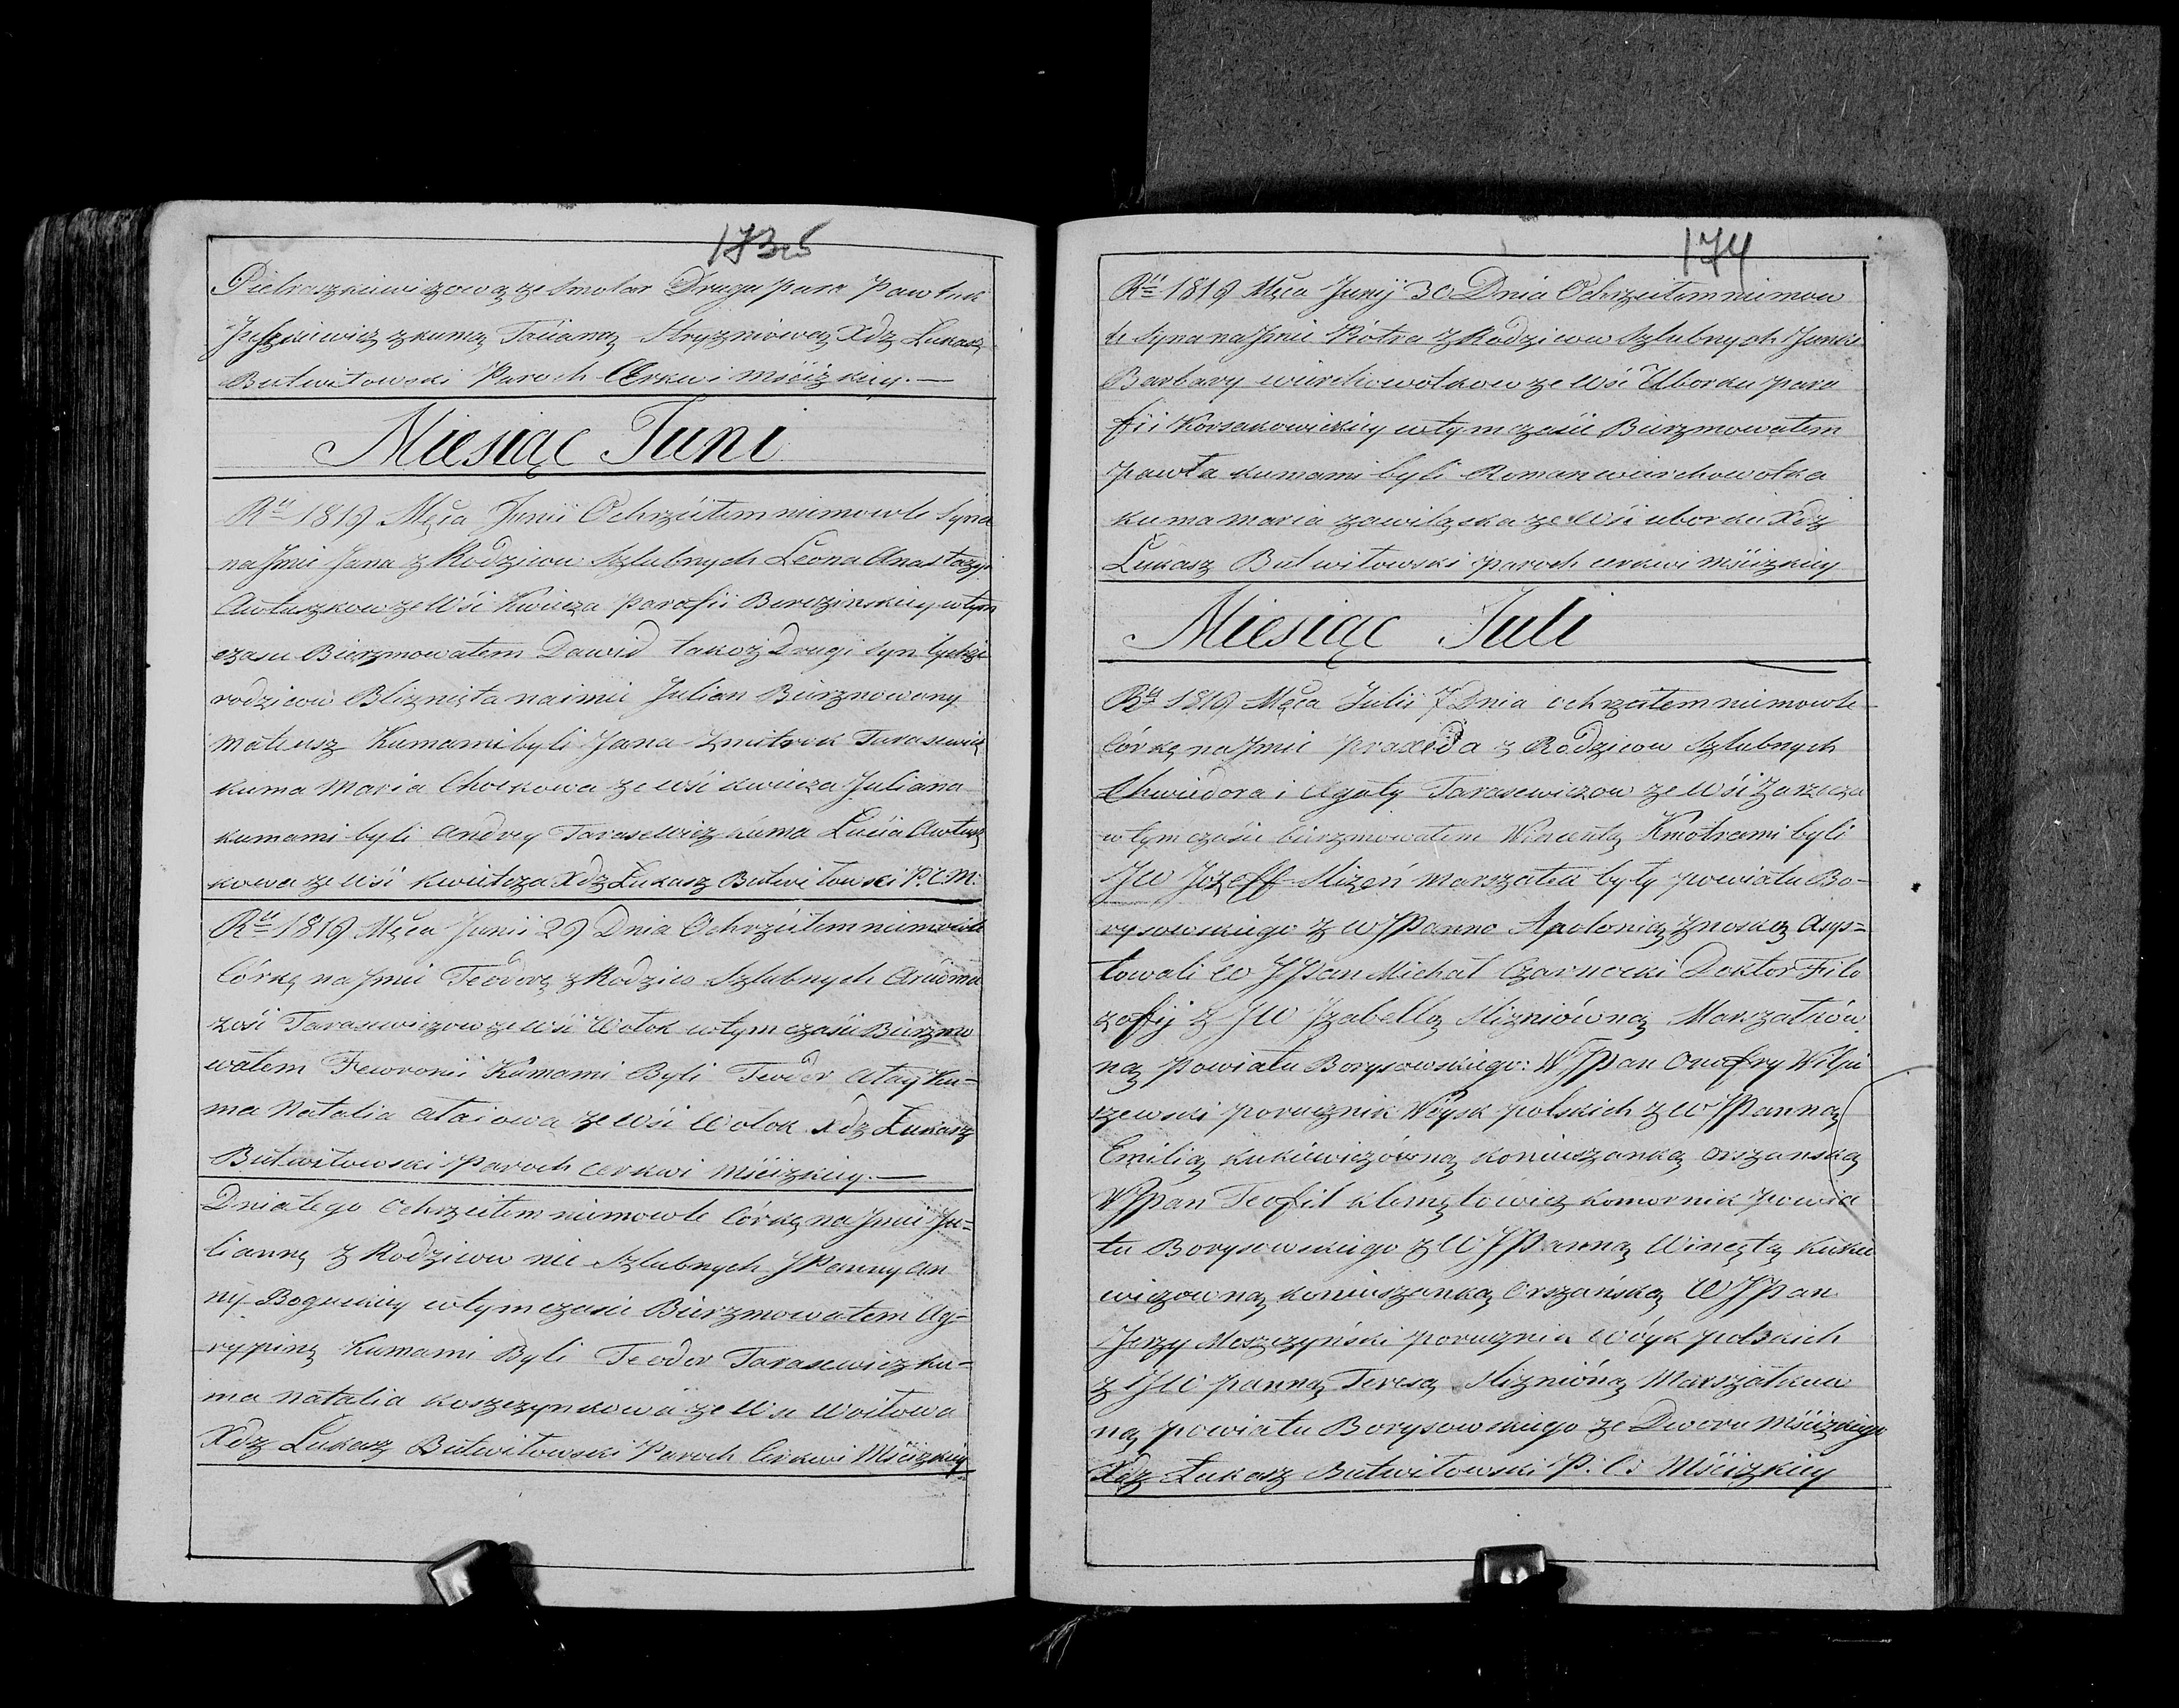 173
Pietraszkiewiczową ze Smolar Druga para Pawluk
z kumą Tacianą Stryzniową Xdz Łukasz
Butwiłowski Paroch Cerkwi Mścizkiey.—
Miesiąc Juni
Ru 1819 Męca Junii Ochrzciłem niemowle Syna
na Jmie Jana z Rodzicow Szlubnych Leona Anastazyi
Awłaszkow ze Wśi Kwiecza Parafii Berezinskiey wtym
czasie Bierzmowałem Dawid takoż Drugi syn tychże
rodzicow Bliznięta na imie Julian Bierzmowany
Mateusz Kumami byli Jana Zmitrok Tarasewicz
kuma Maria Chockowa ze wśi kwiecza Juliana
kumami byli Andrey Tarasewicz kuma Łucia Awłasz
kowa ze wśi kwietcza Xdz Łukasz Butwiłowski P. C. M:
Ru 1819 Męca Junii 29 Dnia Ochrzciłem niemowle
Córkę na Jmie Teodorę z Rodzico Szlubnych
zośi Tarasewiczow ze wśi Wołok wtym czasie Bierzmo
wałem Fewronii Kumami Byli Teodor Ataÿ Ku=
ma Natalia Ataiowa ze wśi Wołok Xdz Łukasz
Butwiłowski Paroch cerkwi Mścizkiey.—
Dnia tego Ochrzciłem niemowle Córkę na Jmie Ju=
liannę z Rodzicow nie Szlubnych JPanny An
ny Boguckiey wtym czasie Bierzmowałem Ag=
rypinę Kumami Byli Teodor Tarasewicz ku=
ma Natalia Koszczynkowa ze Wsi Woiłowa
Xdz Łukasz Butwiłowski Paroch Cerkwi Mścizkiey
174
Ru 1819 Męca Junij 30 Dnia Ochrzciłem niemow
le Syna na Jmie Piotra z Rodzicow Szlubnych Janki
Barbary wierchowołkow ze Wśi Uborku para
fii Korsakowickiey wtym czasie Bierzmowałem
Pawła kumami byli Roman wierchowołka
kuma Maria zawilęska ze wśi uborku Xdz
Łukasz Butwiłowski paroch cerkwi Mścizkiey
Miesiąc Juli
Ru 1819 Męca Julii 7 Dnia ochrzciłem niemowle
Córkę na Jmie Praxeda z Rodzicow Szlubnych
Chwiedora i Agaty Tarasewiczow ze Wśi Zarzecza
wtym czasie bierzmowałem Wincentą Kmotrami byli
JW Jozeff Slizeń Marszałek były powiatu Bo-
rysowskiego z WJPanno Apolonią Znoską Asys=
towali W JPan Michał Czarnocki Doktor Filo
zofij z JW Jzabellą Slizniówną Marszałków
ną Powiatu Borysowskiego: WJPan Onofry
porucznik Woysk polskich z WJPanną
Emilią kukiewiczówną koniuszanką orszanską
WJPan Teofil komornik powia
tu Borysowskiego z WJPanną Wincętą Kukie
wiczowną koniuszanką Orszańską WJPan
Jerzy Moszczyński porucznik Wóyk polskich
z JW panną Teresą Sliznióną Marszałkuw
ną powiatu Borysowskiego ze Dworu Mścizkiego
Xdz Łukasz Butwiłowski P: C: Mścizkiey